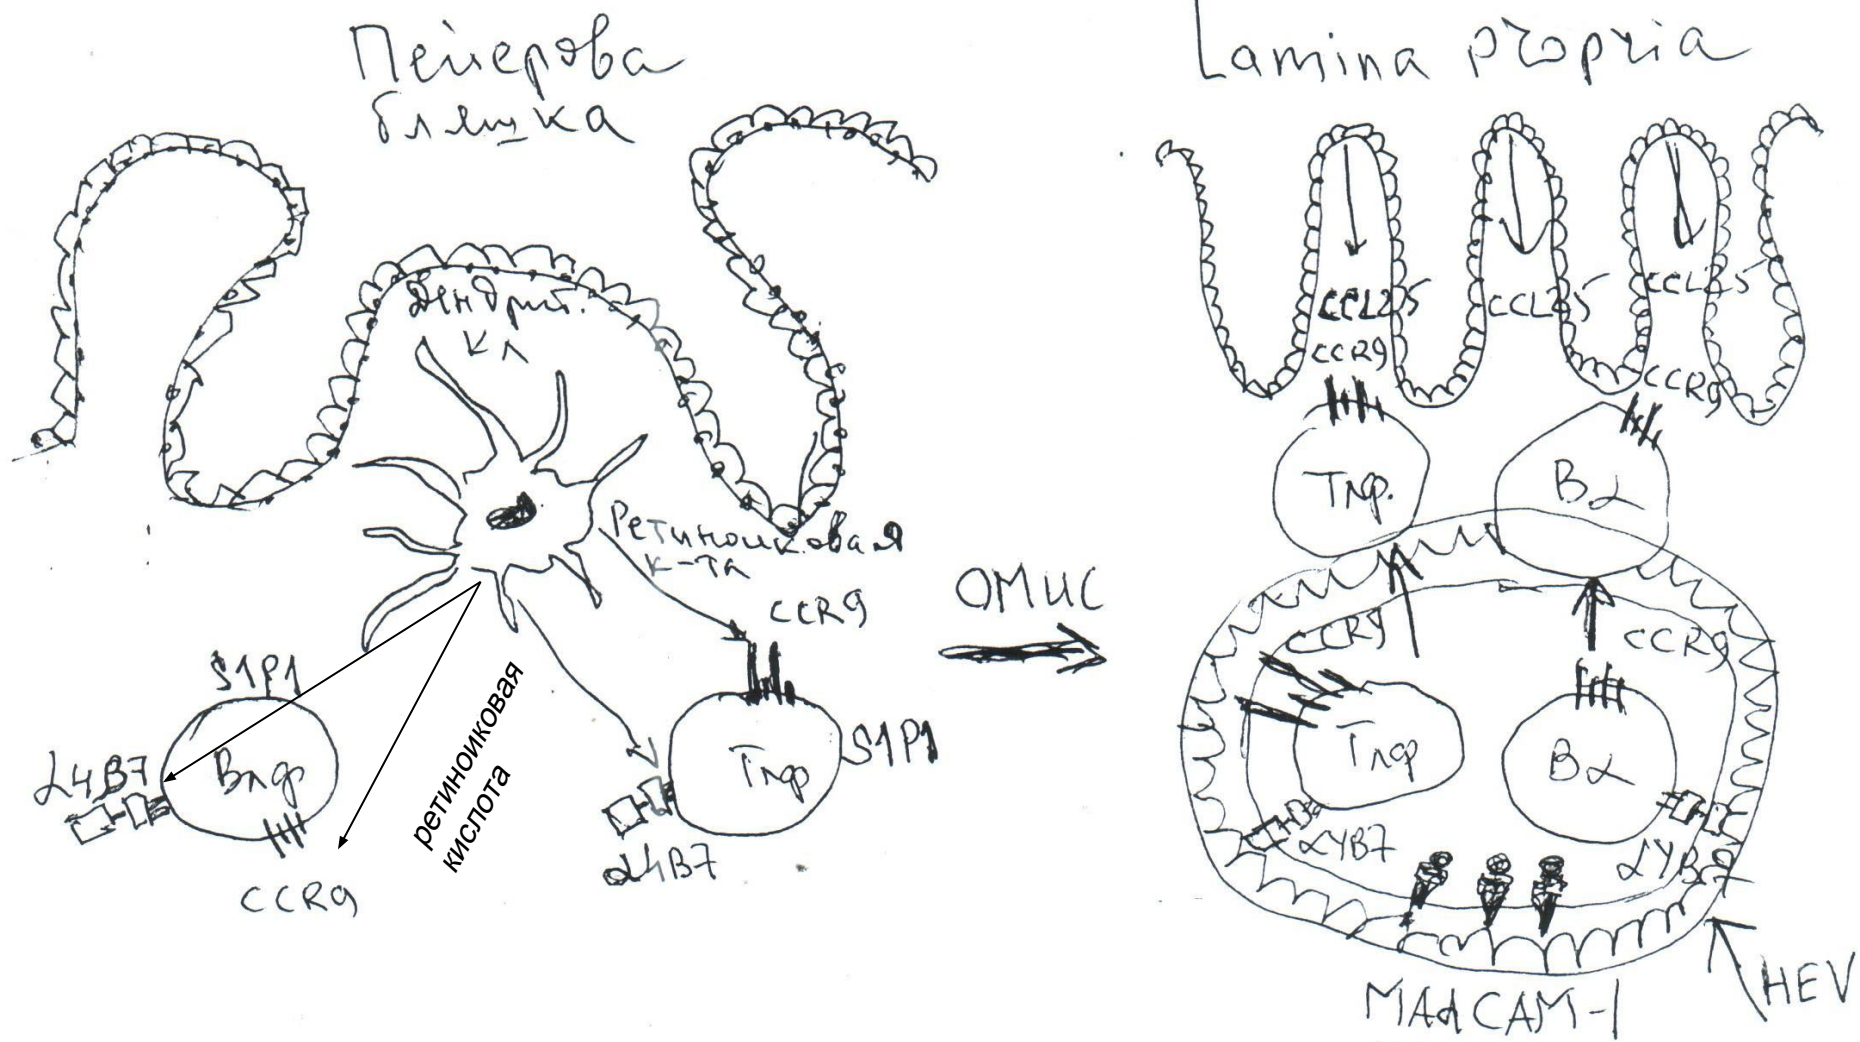 Пейерова
бляшка
Дендрит.
кл
Ретиноиковая
к-та
CCR9
S1P1
α4B7
Влф
CCR9
ретиноиковая
кислота
Тлф
S1P1
α4B7
ОМИС
Lamina propria
CCL25
CCL25
CCL25
CCR9
CCR9
Тлф.
Вл
CCR9
CCR9
Тлф
Вл
α4B7
α4B7
MAdCAM-1
HEV